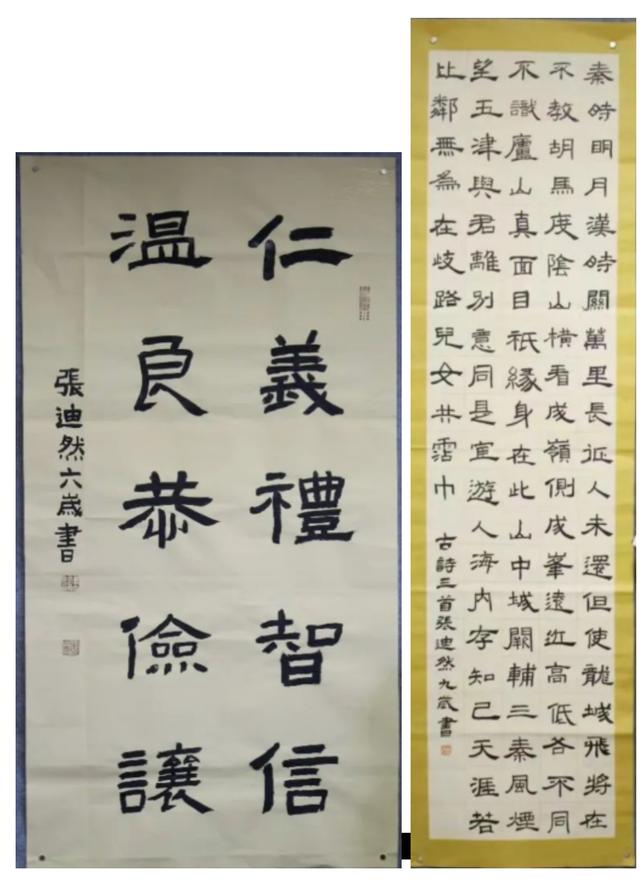 仁義禮智信
温良恭儉讓
張迪然六歲書
秦時明月漢時關萬里長征人未還但使龍城飛將在
不教胡馬度陰山橫看成嶺側成峯遠近高低各不同
不識廬山真面目祇緣身在此山中城闕輔三秦風煙
望五津與君離別意同是宦遊人海內存知己天涯若
比鄰無為在歧路兒女共霑巾
古詩三首張迪然九歲書